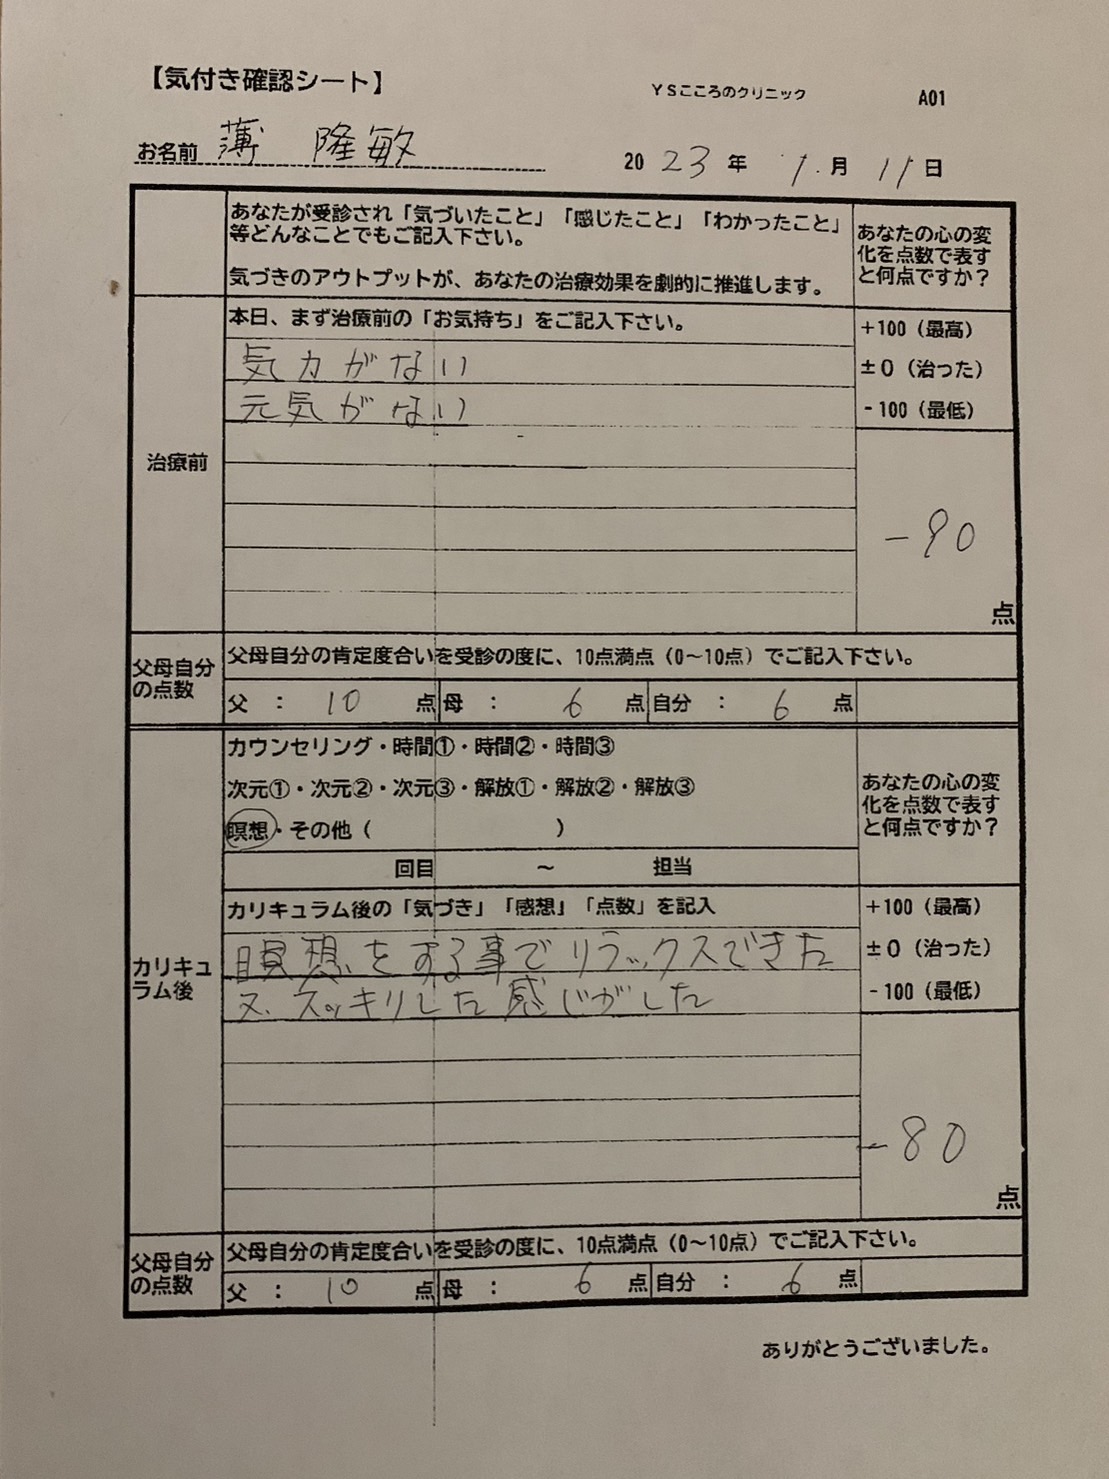 【気付き確認シート】
YSこころのクリニック
A01
お名前 薄 隆敏
2023年 1.月 11日
あなたが受診され「気づいたこと」「感じたこと」「わかったこと」
等どんなことでもご記入下さい。
気づきのアウトプットが、あなたの治療効果を劇的に推進します。
あなたの心の変
化を点数で表す
と何点ですか？
治療前
本日、まず治療前の「お気持ち」をご記入下さい。
気力がない
元気がない
+100（最高）
±0（治った）
-100（最低）
-90
点
父母自分
の点数
父母自分の肯定度合いを受診の度に、10点満点（0～10点）でご記入下さい。
父 ： 10 点 母 ： 6 点 自分 ： 6 点
カリキュ
ラム後
カウンセリング・時間①・時間②・時間③
次元①・次元②・次元③・解放①・解放②・解放③
瞑想・その他（ ）
回目 ～ 担当
あなたの心の変
化を点数で表す
と何点ですか？
カリキュラム後の「気づき」「感想」「点数」を記入
瞑想をする事でリラックスできた
又、スッキリした感じがした
+100（最高）
±0（治った）
-100（最低）
-80
点
父母自分
の点数
父母自分の肯定度合いを受診の度に、10点満点（0～10点）でご記入下さい。
父 ： 10 点 母 ： 6 点 自分 ： 6 点
ありがとうございました。